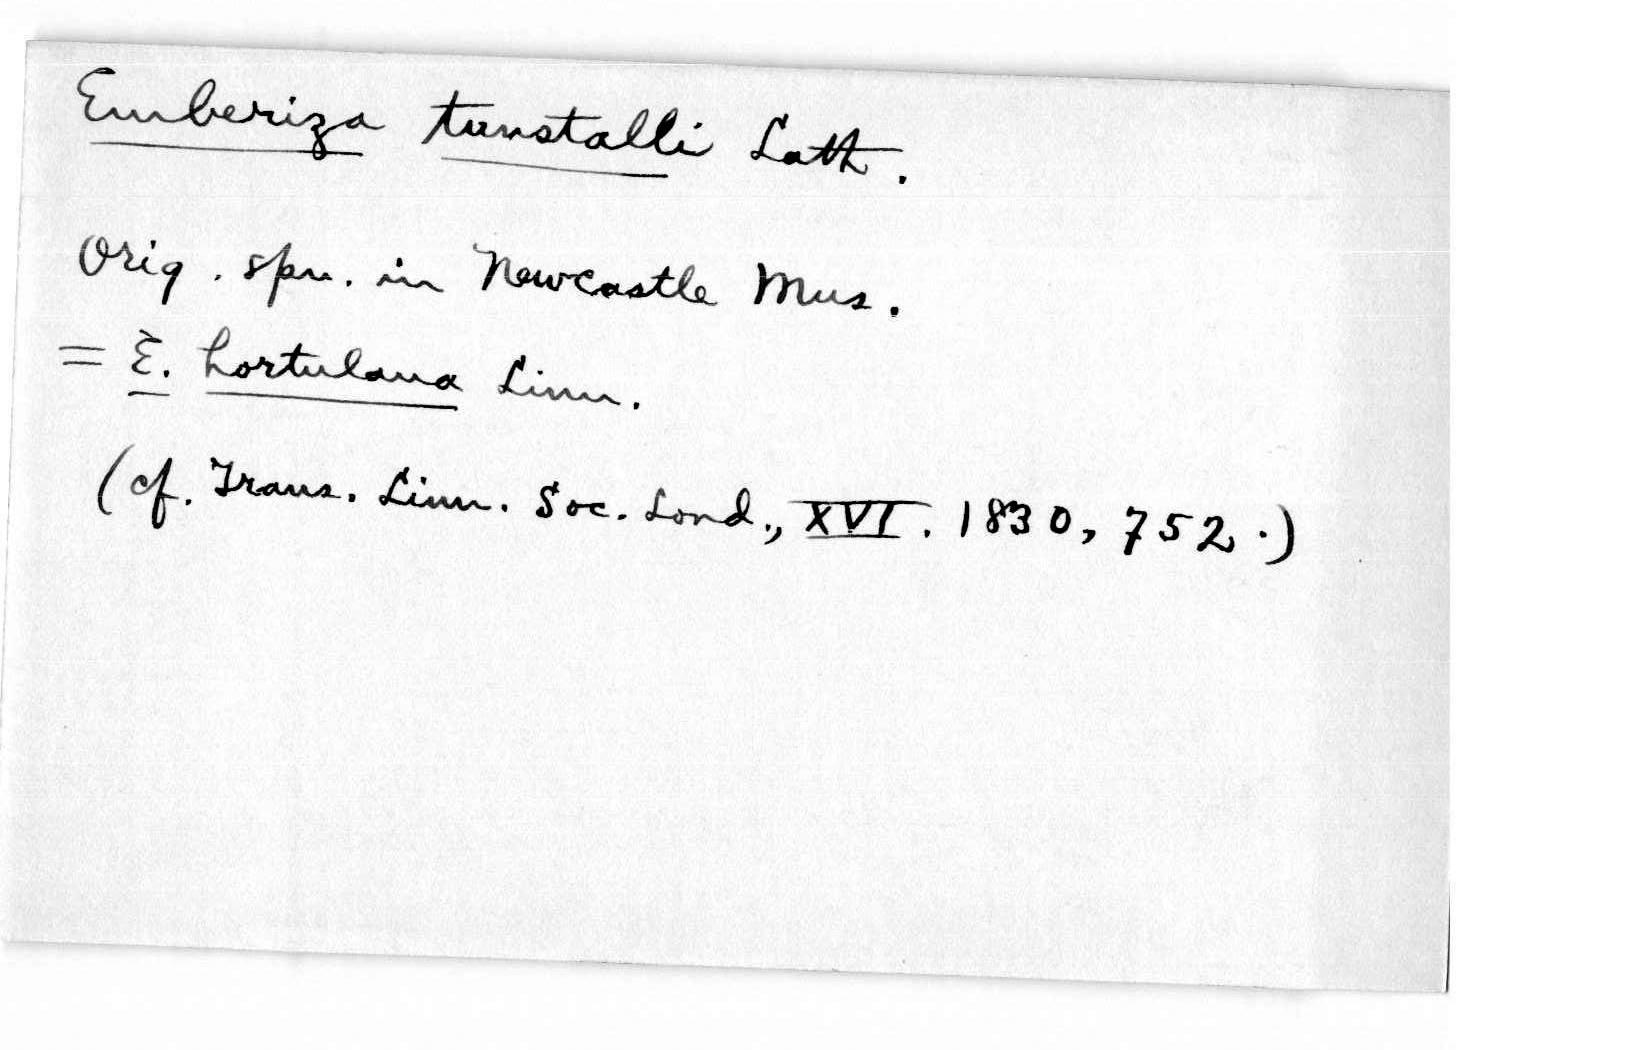 Emberiza tunstalli Lath.
Orig. spn. in Newcastle Mus.
= E. hortulana Linn.
(cf. Trans. Linn. Soc. Lond., XVI. 1830, 752.)